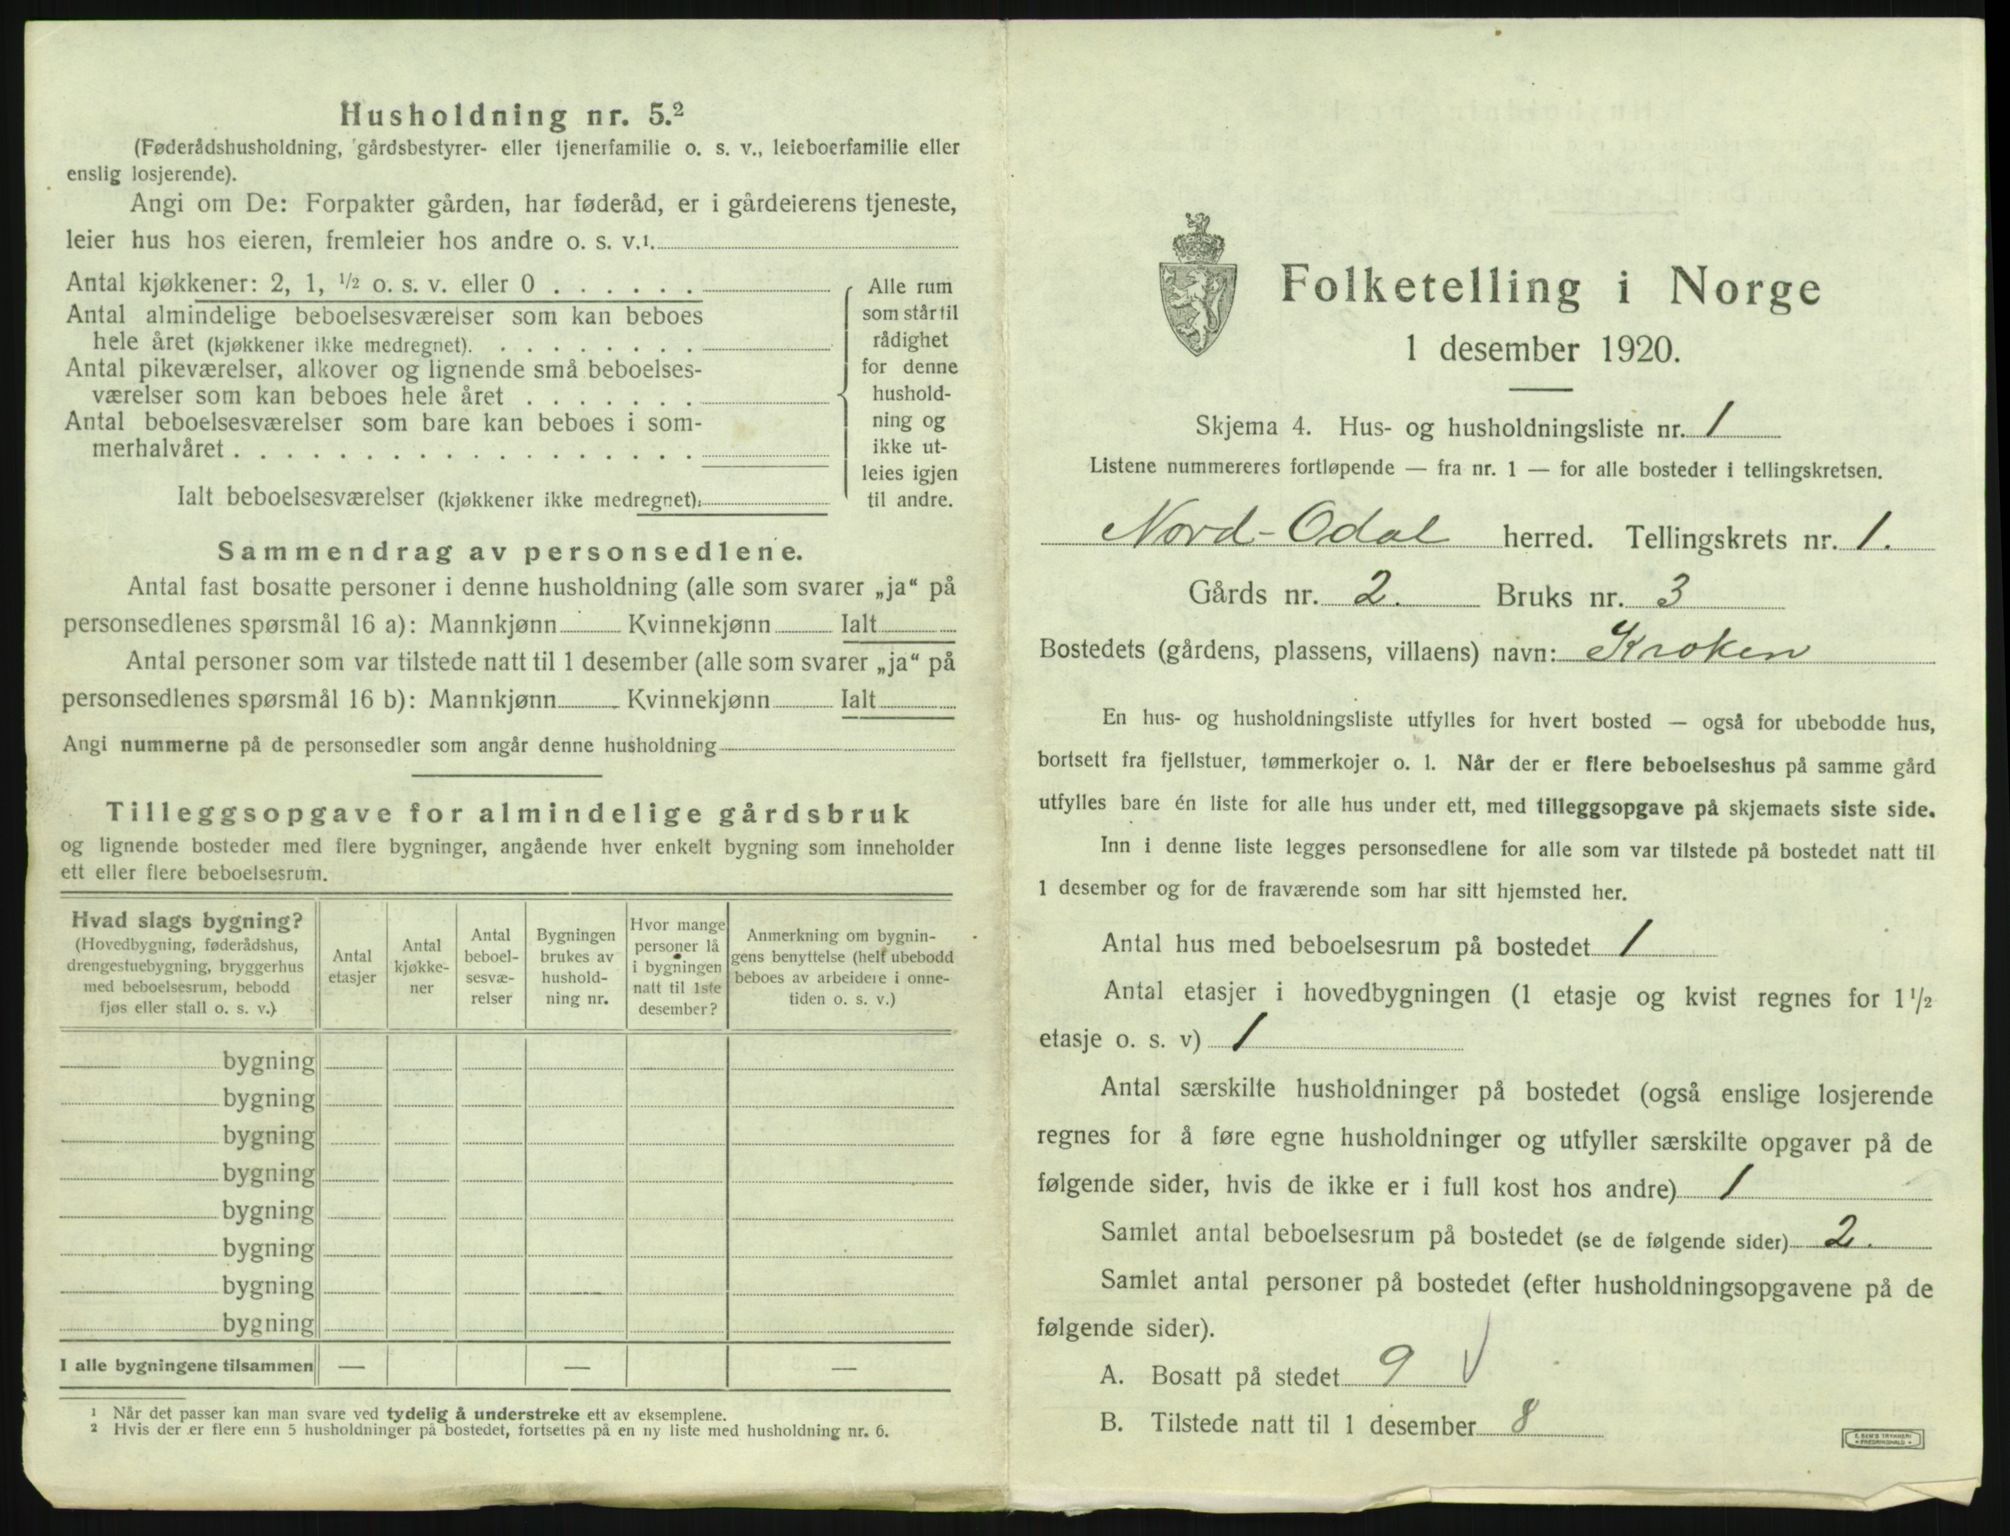 Husholdning nr. 5.²
(Føderådshusholdning, gårdsbestyrer- eller tjenerfamilie o. s. v., leieboerfamilie eller
enslig losjerende).
Angi om De: Forpakter gården, har føderåd, er i gårdeierens tjeneste,
leier hus hos eieren, fremleier hos andre o. s. v.¹
Antal kjøkkener: 2, 1, ½ o. s. v. eller 0 . . . . . .
Antal almindelige beboelsesværelser som kan beboes
hele året (kjøkkener ikke medregnet). . . . . . . . .
Antal pikeværelser, alkover og lignende små beboelses-
værelser som kan beboes hele året . . . . . . .
Antal beboelsesværelser som bare kan beboes i som-
merhalvåret . . . . . . . . . . . . . . . . . .
Ialt beboelsesværelser (kjøkkener ikke medregnet).
Alle rum
som står til
rådighet
for denne
hushold-
ning og
ikke ut-
leies igjen
til andre.
Sammendrag av personsedlene.
Antal fast bosatte personer i denne husholdning (alle som svarer „ja“ på
personsedlenes spørsmål 16 a): Mannkjønn Kvinnekjønn Ialt
Antal personer som var tilstede natt til 1 desember (alle som svarer „ja“ på
personsedlenes spørsmål 16 b): Mannkjønn Kvinnekjønn Ialt
Angi nummerne på de personsedler som angår denne husholdning
Tilleggsopgave for almindelige gårdsbruk
og lignende bosteder med flere bygninger, angående hver enkelt bygning som inneholder
ett eller flere beboelsesrum.
Hvad slags bygning?
(Hovedbygning, føderådshus,
drengestuebygning, bryggerhus
med beboelsesrum, bebodd
fjøs eller stall o. s. v.)
Antal
etasjer
Antal
kjøkke-
ner
Antal
beboel-
sesvæ-
relser
Bygningen
brukes av
hushold-
ning nr.
Hvor mange
personer lå
i bygningen
natt til 1ste
desember?
Anmerkning om bygnin-
gens benyttelse (helt ubebodd
beboes av arbeidere i onne-
tiden o. s. v.)
bygning
bygning
bygning
bygning
bygning
bygning
bygning
bygning
I alle bygningene tilsammen — — —
¹ Når det passer kan man svare ved tydelig å understreke ett av eksemplene.
² Hvis der er flere enn 5 husholdninger på bostedet, fortsettes på en ny liste med husholdning nr. 6.
Folketelling i Norge
1 desember 1920.
Skjema 4. Hus- og husholdningsliste nr. 1
Listene nummereres fortløpende — fra nr. 1 — for alle bosteder i tellingskretsen.
Nord-Odal herred. Tellingskrets nr. 1.
Gårds nr. 2. Bruks nr. 3
Bostedets (gårdens, plassens, villaens) navn: Kroken
En hus- og husholdningsliste utfylles for hvert bosted — også for ubebodde hus,
bortsett fra fjellstuer, tømmerkojer o. l. Når der er flere beboelseshus på samme gård
utfylles bare én liste for alle hus under ett, med tilleggsopgave på skjemaets siste side.
Inn i denne liste legges personsedlene for alle som var tilstede på bostedet natt til
1 desember og for de fraværende som har sitt hjemsted her.
Antal hus med beboelsesrum på bostedet 1
Antal etasjer i hovedbygningen (1 etasje og kvist regnes for 1½
etasje o. s. v) 1
Antal særskilte husholdninger på bostedet (også enslige losjerende
regnes for å føre egne husholdninger og utfyller særskilte opgaver på de
følgende sider, hvis de ikke er i full kost hos andre) 1
Samlet antal beboelsesrum på bostedet (se de følgende sider) 2.
Samlet antal personer på bostedet (efter husholdningsopgavene på de
følgende sider).
A. Bosatt på stedet 9 √
B. Tilstede natt til 1 desember 8
E. SEM'S TRYKKERI
FREDRIKSHALD